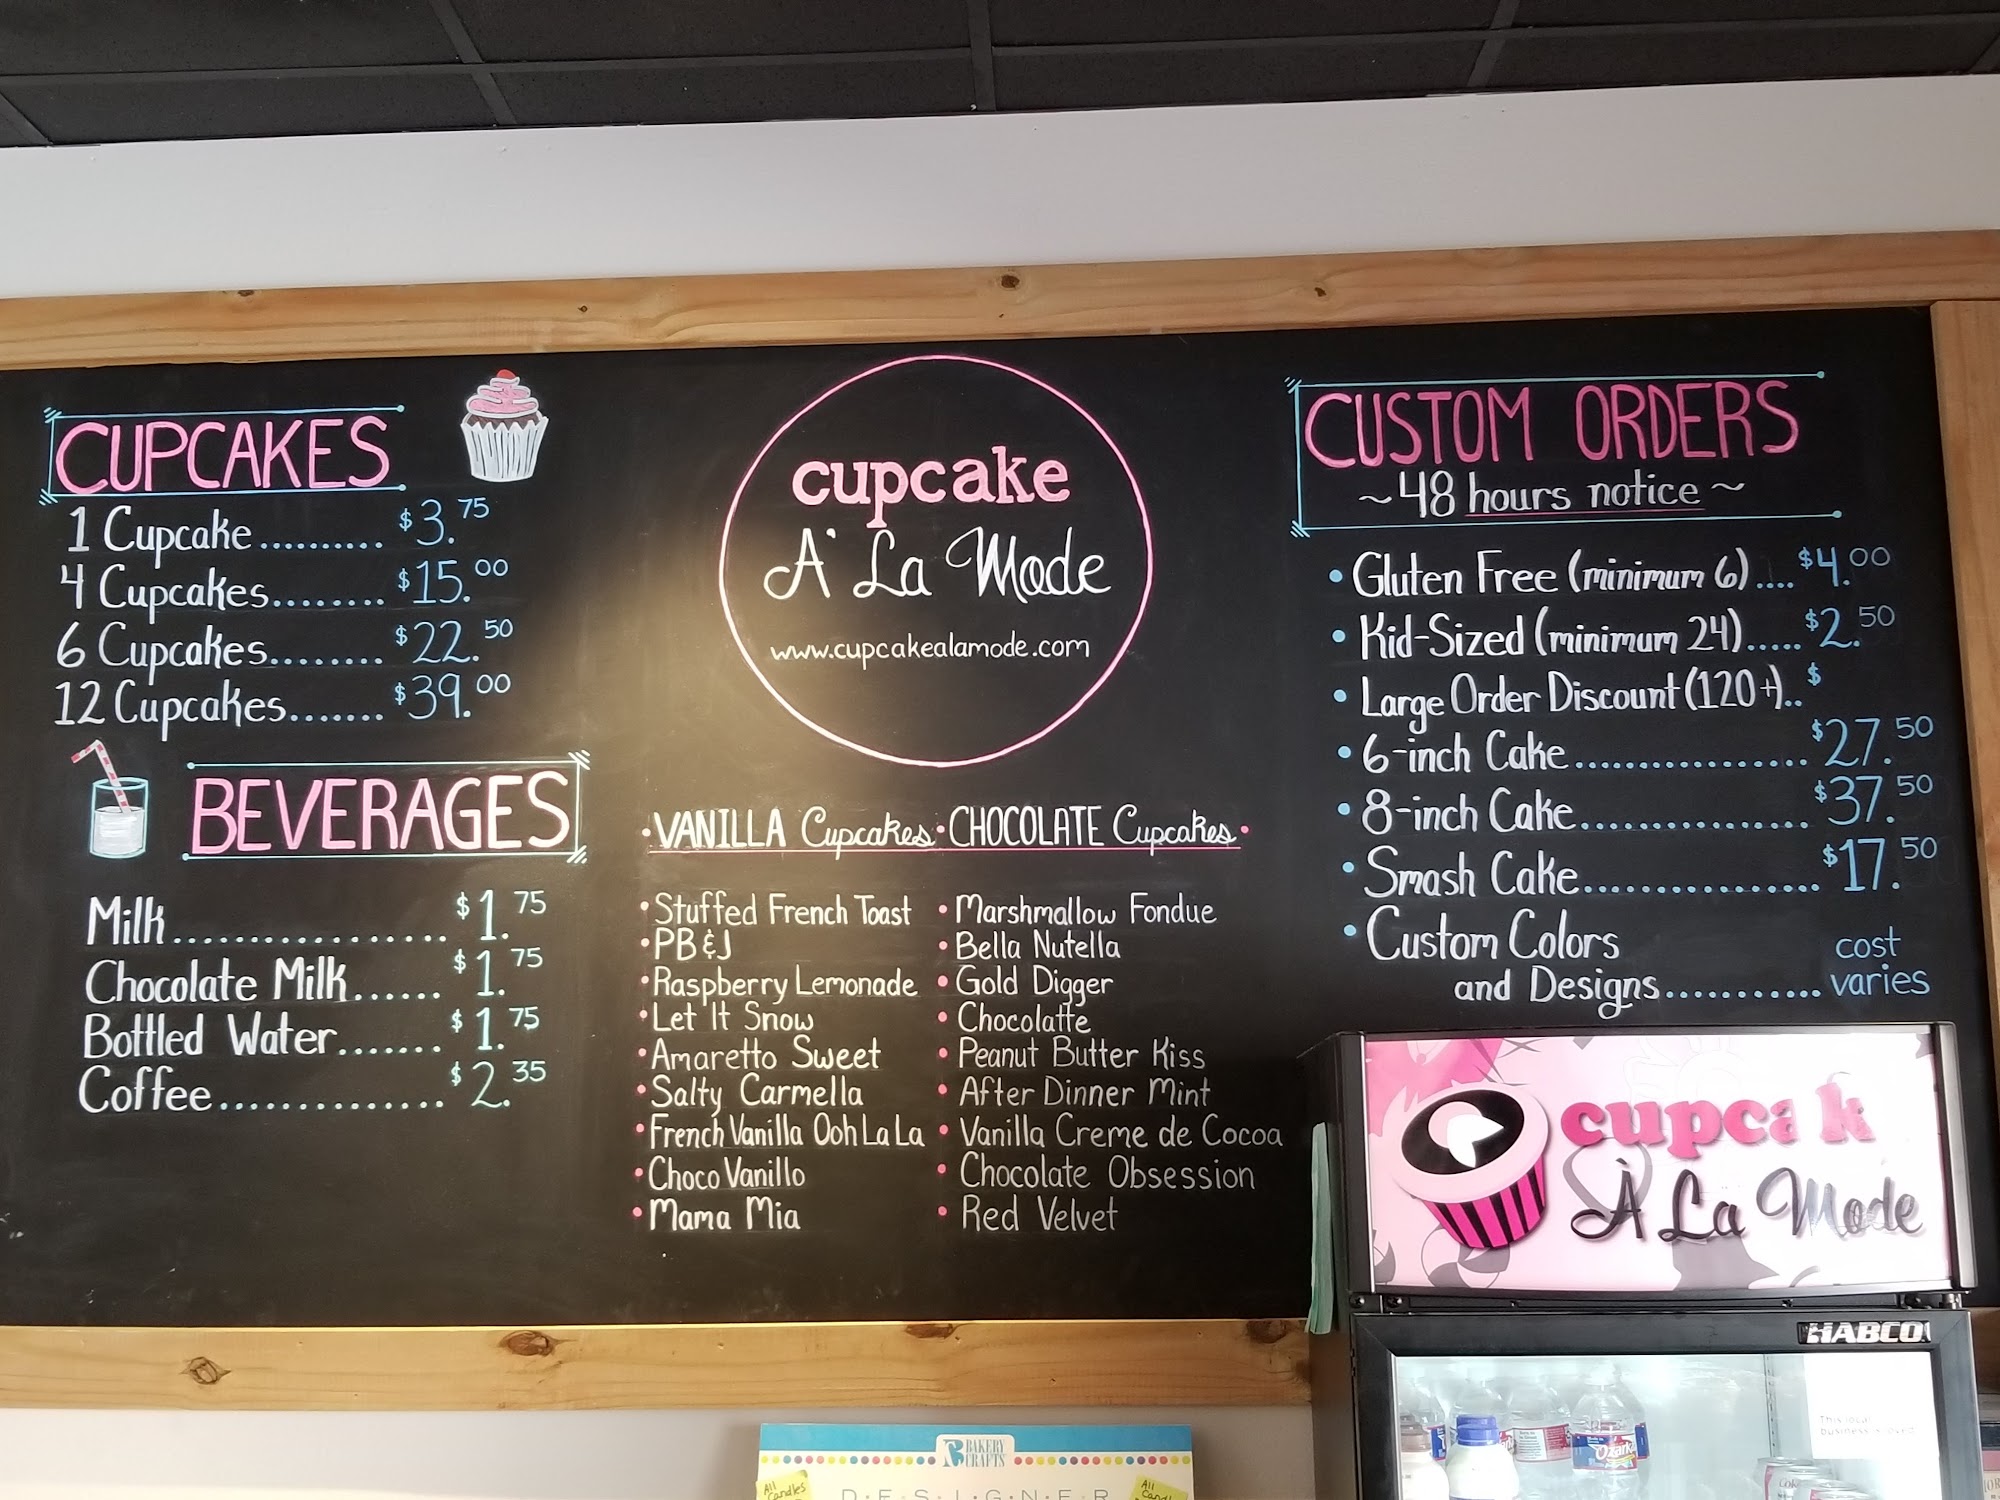 CUPCAKES
1 Cupcake .......... $3.75
4 Cupcakes........ $15.00
6 Cupcakes........ $22.50
12 Cupcakes....... $39.00
BEVERAGES
Milk.................. $1.75
Chocolate Milk...... $1.75
Bottled Water....... $1.75
Coffee............... $2.35
cupcake
A' La Mode
www.cupcakealamode.com
• VANILLA Cupcakes • CHOCOLATE Cupcakes •
• Stuffed French Toast
• PB&J
• Raspberry Lemonade
• Let It Snow
• Amaretto Sweet
• Salty Carmella
• French Vanilla Ooh La La
• Choco Vanillo
• Mama Mia
• Marshmallow Fondue
• Bella Nutella
• Gold Digger
• Chocolatte
• Peanut Butter Kiss
• After Dinner Mint
• Vanilla Creme de Cocoa
• Chocolate Obsession
• Red Velvet
CUSTOM ORDERS
~48 hours notice~
• Gluten Free (minimum 6).... $4.00
• Kid-Sized (minimum 24)..... $2.50
• Large Order Discount (120+).. $
• 6-inch Cake.................. $27.50
• 8-inch Cake................. $37.50
• Smash Cake.................. $17.50
• Custom Colors
and Designs............ cost varies
cupcak
À La Mode
HABCO
This local
business is loved
Ozarka
BAKERY
CRAFTS
All
Candles
DESIGNER
All